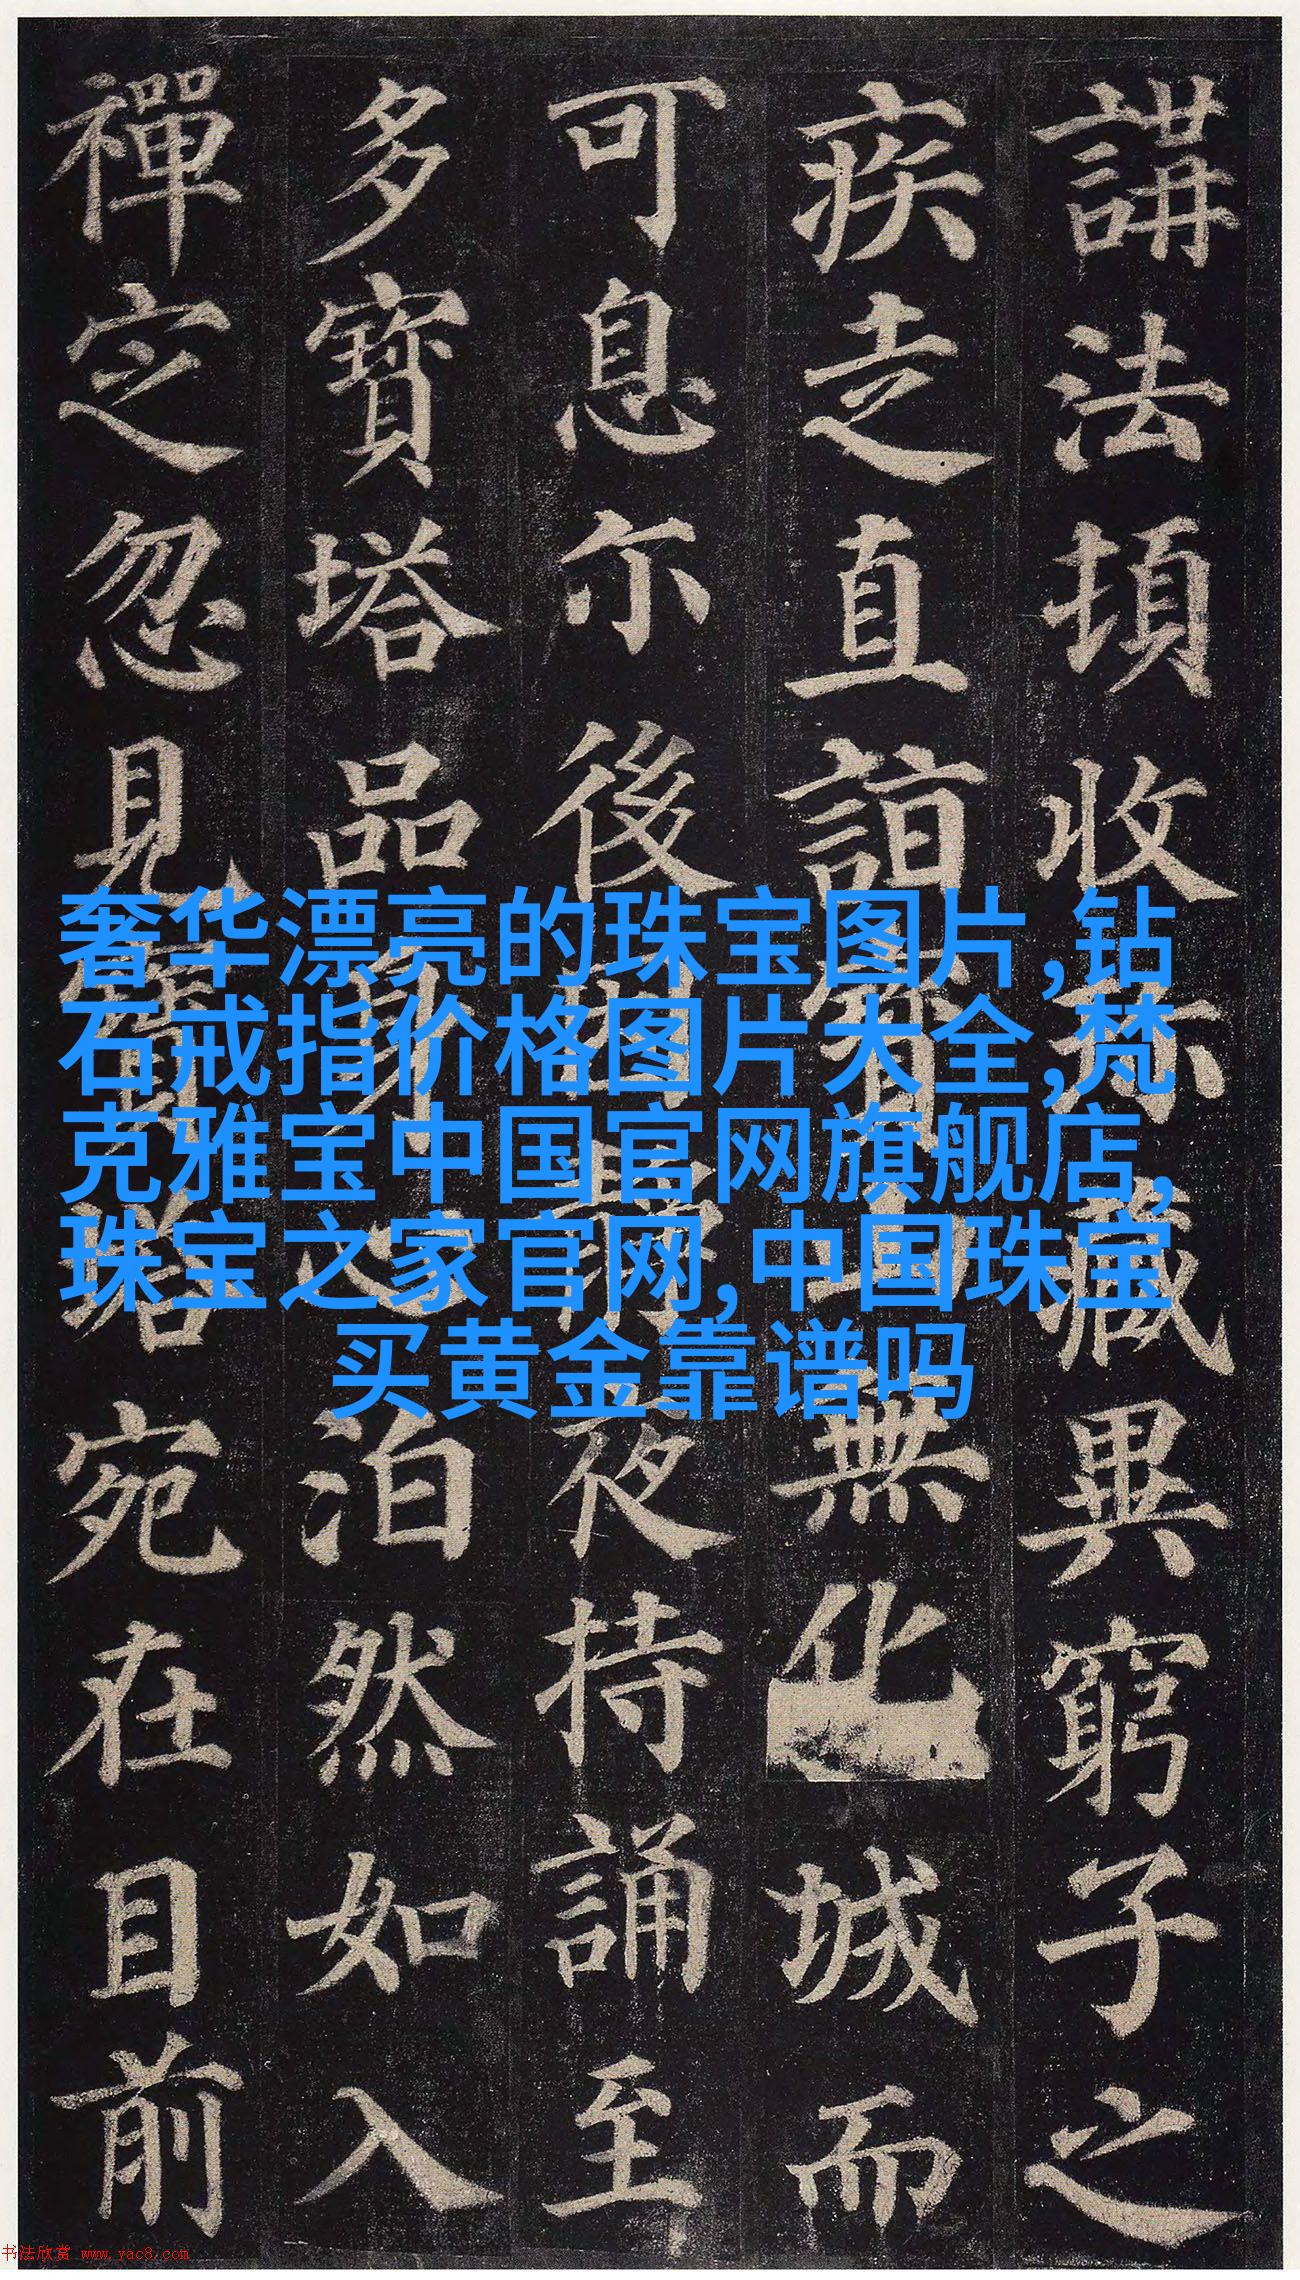 講法頓收珎藏異窮子之
疾走直詣寳山無化城而
可息尒後因静夜持誦至
多寳塔品身心泊然如入
禪定忽見寳塔宛在目前
奢华漂亮的珠宝图片,钻
石戒指价格图片大全,梵
克雅宝中国官网旗舰店,
珠宝之家官网,中国珠宝
买黄金靠谱吗
书法欣赏 www.yac8.com